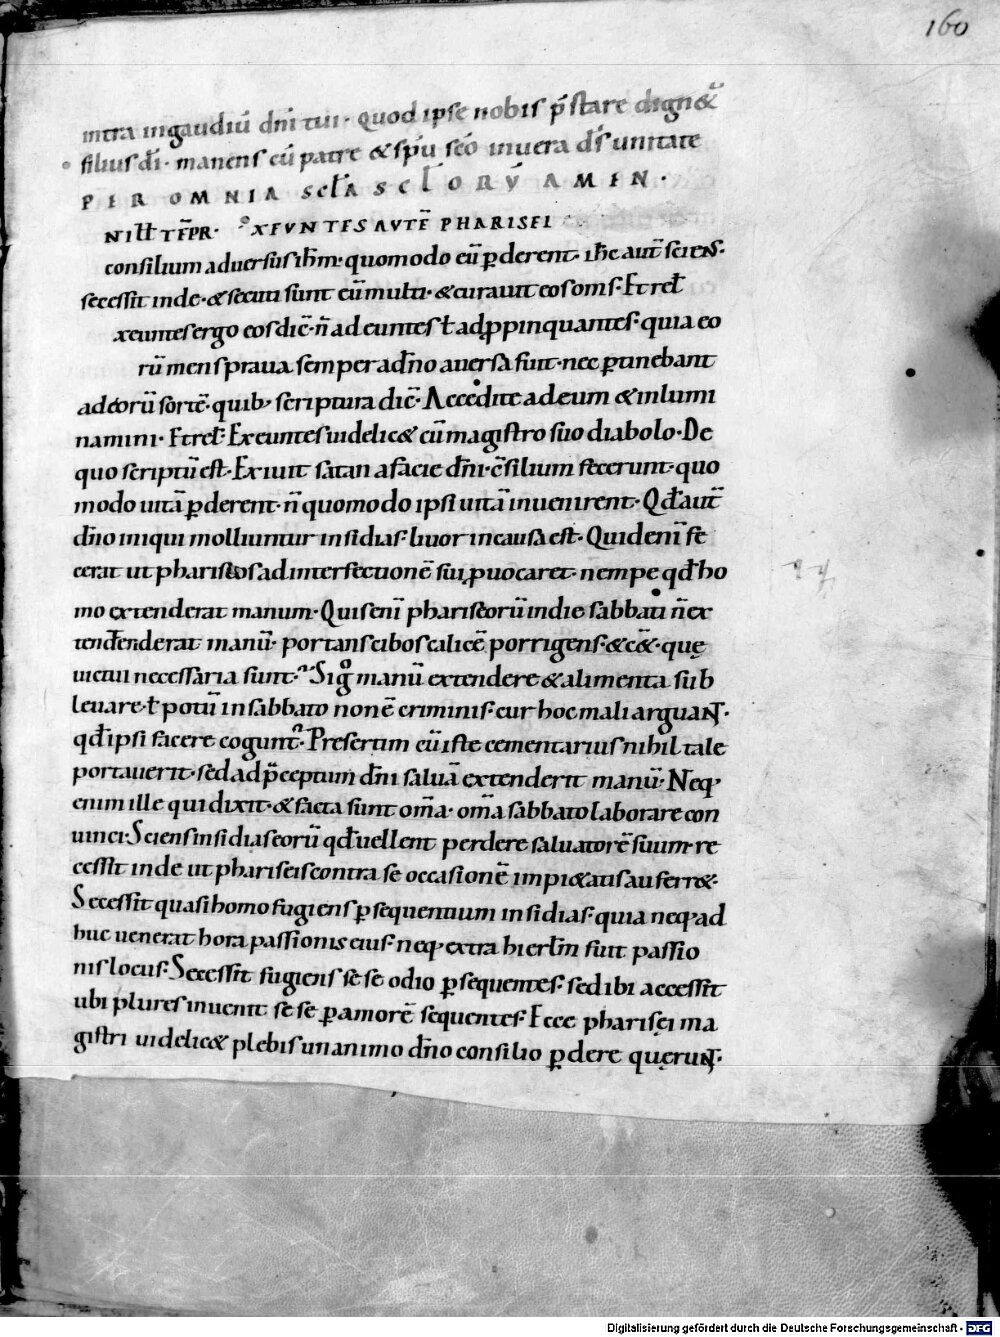 160
intra ingaudiū dn̄i tui · quod ipse nobis p̄stare dign&
filius dī · manens cū patre & sp̄u scō inuera dī unitate
PER OMNIA SCL̄A SCLORV̄ AMEN ·
XEVNTES AVTĒ PHARISEI
consilium aduersus ih̄m · quomodo eū ꝑderent · ih̄c aut̄ sciens ·
secessit inde · & secuti sunt eū multi · & curauit eos om̄s · Et rel̄
xeuntes ergo eos dic̄ · n̄ ad euntes ł adpropinquantes · quia eo
rū mens praua semper ad n̄o auersa fuit · nec ꝑtinebant
ad eorū sortē · quib; scriptura dic̄ · Accedite ad eum & inlumi
namini · Et rel̄ · Exeuntes uidelic& cū magistro suo diabolo · De
quo scriptū est · Exiuit satan a facie dn̄i · c̄silium fecerunt · quo
modo uitā ꝑderent · n̄ quomodo ipsi uitā inuenirent · Qd̄ aut̄
dn̄o iniqui molliuntur insidias · liuor in causa est · Quid enī fe
cerat ut phariseos ad intersectionē sui ꝓuocaret · nempe qd̄ ho
mo extenderat manum · Quis enī phariseorū in die sabbati n̄ ex
tend̄enderat manū · portans cibos calicē porrigens · & c&̄ · quę
uictui necessaria sunt · Sig manū extendere & alimenta sub
leuare · ł potū in sabbato non ē criminis · cur hoc mali arguant ·
qd̄ ipsi facere cogunt · Presertim cū iste cementarius nihil tale
portauerit · sed ad p̄ceptum dn̄i saluā extenderit manū · Neq;
enim ille qui dixit · & facta sunt om̄a · om̄a sabbato laborare con
uinci · Sciens insidias eorū qd̄ uellent perdere saluatorē suum · re
cessit inde ut phariseis contra se occasionē impi&atis auferr& ·
Secessit quasi homo fugiens ꝑsequentium insidias · quia neq; ad
huc uenerat hora passionis eius · neq; extra hierl̄m fuit passio
nis locus · Secessit fugiens se se odio ꝑsequentes · sed ibi accessit
ubi plures inuenit se se ꝑ amorē sequentes · Ecce pharisęi ma
gistri uidelic& plebis unanimo dn̄o consilio ꝑdere quęrunt ·
Digitalisierung gefördert durch die Deutsche Forschungsgemeinschaft - DFG